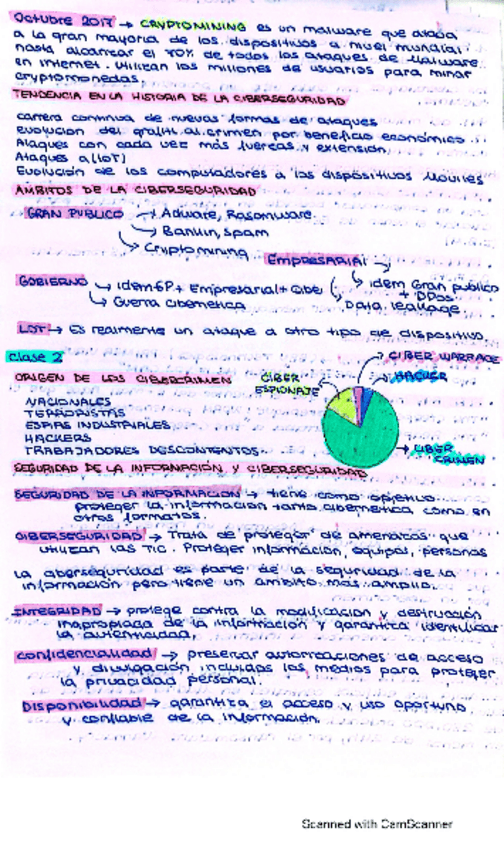 Octubre 2017 → CRYPTOMINING es un malware que ataca
a la gran mayoria de los dispositivos a nivel mundial
hasta alcanzar el 90% de todos los ataques de Malware
en internet. Utilizan los millones de usuarios para minar
cryptomonedas.
TENDENCIA EN LA HISTORIA DE LA CIBERSEGURIDAD
carrera continua de nuevas formas de ataques
evolucion del grafiti al crimen por beneficio económico
Ataques con cada vez más fuerzas y extensión
Ataques a (IoT)
Evolución de los computadores a los dispositivos Moviles
AMBITOS DE LA CIBERSEGURIDAD
GRAN PUBLICO → Adware, Rasomware
→ Bankin, spam
→ Cryptomining
EMPRESARIAL → idem Gran publico
+ DDos
Data leakage
GOBIERNO → Idem GP + Empresarial + Cibe
→ Guerra cibernetica
→ Es realmente un ataque a otro tipo de dispositivo.
Clase 2
ORIGEN DE LOS CIBERCRIMEN
NACIONALES
TERRORISTAS
ESPIAS INDUSTRIALES
HACKERS
TRABAJADORES DESCONTENTOS
CIBER
ESPIONAJE
CIBER WARFACE
HACKER
CIBER
CRIMEN
SEGURIDAD DE LA INFORMACION Y CIBERSEGURIDAD
SEGURIDAD DE LA INFORMACION → tiene como objetivo
proteger la información tanto cibernetica como en
otros formatos.
CIBERSEGURIDAD → Trata de proteger de amenazas que
utilizan las TIC. Proteger informacion, equipos, personas
La ciberseguridad es parte de la seguridad de la
información pero tiene un ambito más amplio.
INTEGRIDAD → protege contra la modificacion y destrucción
inapropiada de la información y garantiza identificar
la autenticidad.
Confidencialidad → preservar autorizaciones de acceso
y divulgación incluidos los medios para proteger
la privacidad personal.
Disponibilidad → garantiza el acceso y uso oportuno
y confiable de la información.
Scanned with CamScanner